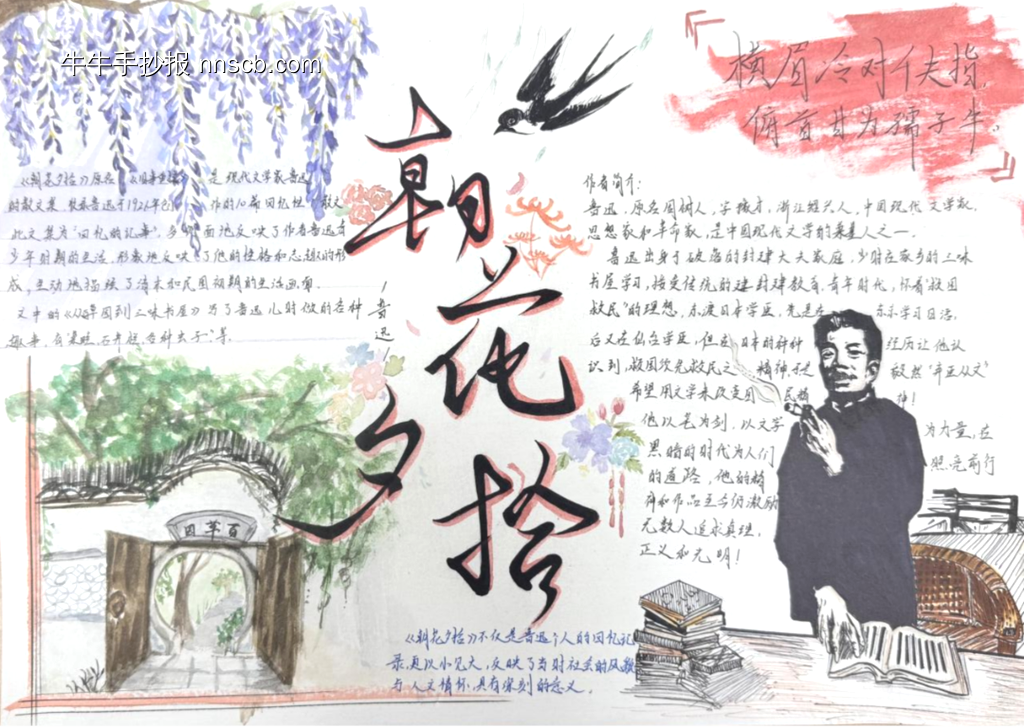 牛牛手抄报 nnscb.com
横眉冷对千夫指,
俯首甘为孺子牛。
朝花夕拾
—鲁迅
《朝花夕拾》原名《旧事重提》 是现代文学家鲁迅
的散文集,收录鲁迅于1926年创作的10篇回忆性散文
此文集为"回忆的记事",多 面地反映了作者鲁迅青
少年时期的生活,形象地反映了他的性格和志趣的形
成。生动地描绘了清末和民国初期的生活画面。
文中的《从百草园到三味书屋》写了鲁迅儿时做的各种
趣事,
百草园
作者简介:
鲁迅,原名周树人,字豫才,浙江绍兴人,中国现代文学家,
思想家和革命家,是中国现代文学的奠基人之一.
鲁迅出身于破落的封建大夫家庭,少时在家乡的三味
书屋学习,接受传统的建封建教育,青年时代,怀着"救国
救民"的理想,东渡日本学医,先是在 东京学习日语,
后又在仙台学医,但在日本的种种 经历让他认
识到,救国须先救民之 精神 于是 毅然"弃医从文"
希望用文学来改变国 民精 神!
他以笔为剑,以文字 为力量,在
黑暗的时代为人们 照亮前行
的道路,他的精
神和作品至今仍激励
无数人追求真理,
正义和光明!
《朝花夕拾》不仅是鲁迅个人的回忆记
录,更以小见大,反映了当时社会的风貌
与人文情怀,具有深刻的意义。